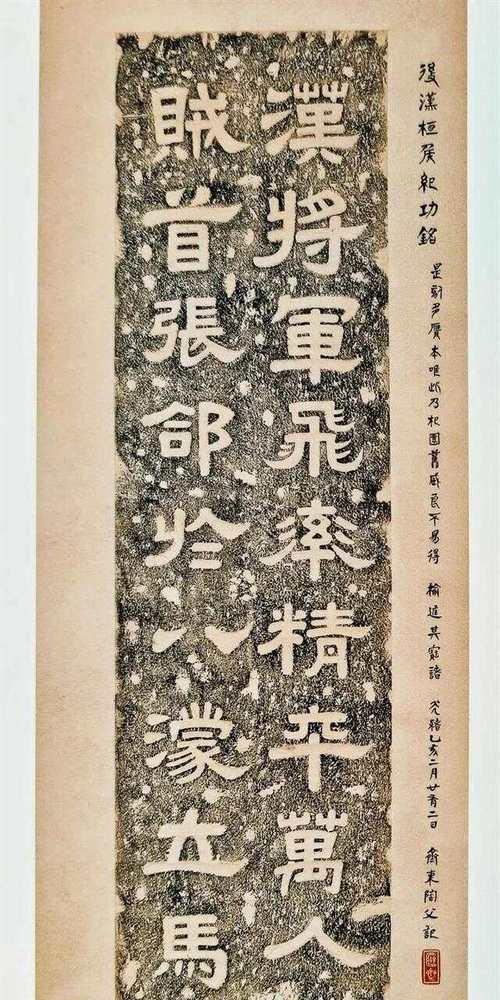 後漢桓侯紀功銘 是刻多贗本唯此乃杞園舊臧良不易得 其寶諸 光緒乙亥二月廿有二日 齊東陶父記
漢將軍飛率精卒萬人
賊首張郃於八濛立馬